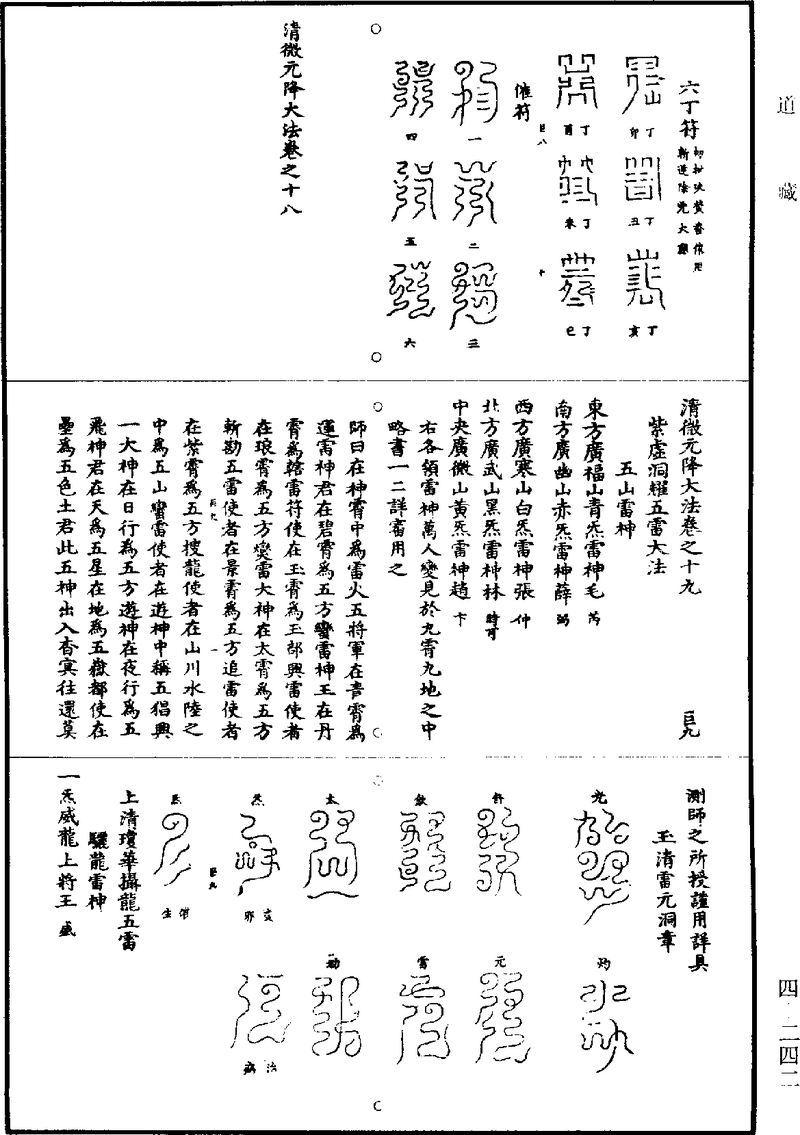 道藏
六丁符
丁卯
丁丑
丁亥
丁酉
丁未
丁巳
催符
一
二
三
四
五
六
清微元降大法卷之十八
清微元降大法卷之十九 巨九
紫虛洞耀五雷大法
五山雷神
東方廣福山青炁雷神毛芮
南方廣幽山赤炁雷神薛弼
西方廣寒山白炁雷神張仲
北方廣武山黑炁雷神林時可
中央廣微山黃炁雷神趙卞
右各領雷神萬人變見於九霄九地之中
略書一二詳審用之
師曰在神霄中為雷火五將軍在青霄為
運雷神君在碧霄為五方蠻雷神王在丹
霄為轄雷符使在玉霄為王部興雷使者
在琅霄為五方爕雷大神在太霄為五方
斬勘五雷使者在景霄為五方追雷使者
在紫霄為五方搜龍使者在山川水陸之
中為五山蠻雷使者在遊神中稱五猖興
一大神在日行為五方遊神在夜行為五
飛神君在天為五星在地為五嶽都使在
壘為五色土君此五神出入杳冥往還莫
測師之所授謹用詳具
玉清雷元洞章
元
雷
太
上清瓊華攝龍五雷
驪龍雷神
一炁威龍上將王盛
四·二四二